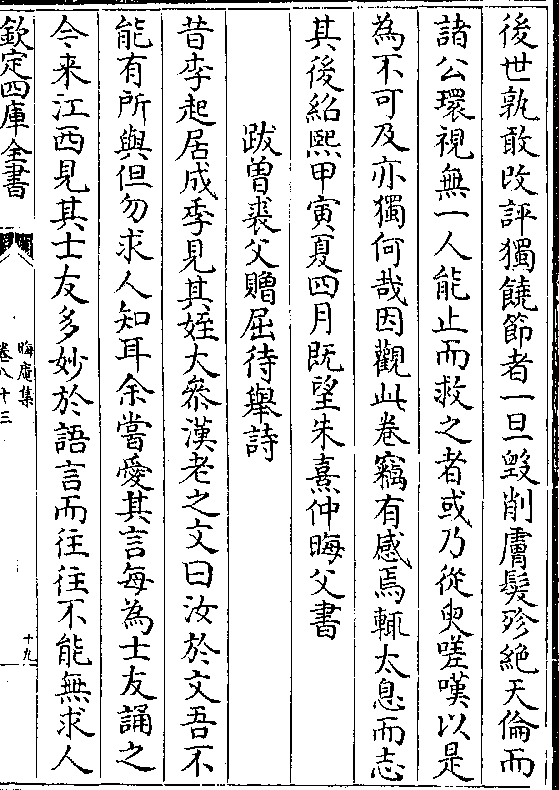 後世孰敢改評獨饒節者一旦毀削膚髮殄絶天倫而
諸公環視無一人能止而救之者或乃從臾嗟嘆以是
為不可及亦獨何哉因觀此卷竊有感焉輒太息而志
其後紹熙甲寅夏四月既望朱熹仲晦父書
跋曽裘父贈屈待舉詩
昔李起居成季見其姪大叅漢老之文曰汝於文吾不
能有所與但勿求人知耳余嘗愛其言每為士友誦之
今来江西見其士友多妙於語言而往往不能無求人
欽定四庫全書
晦庵集
卷八十三
十九